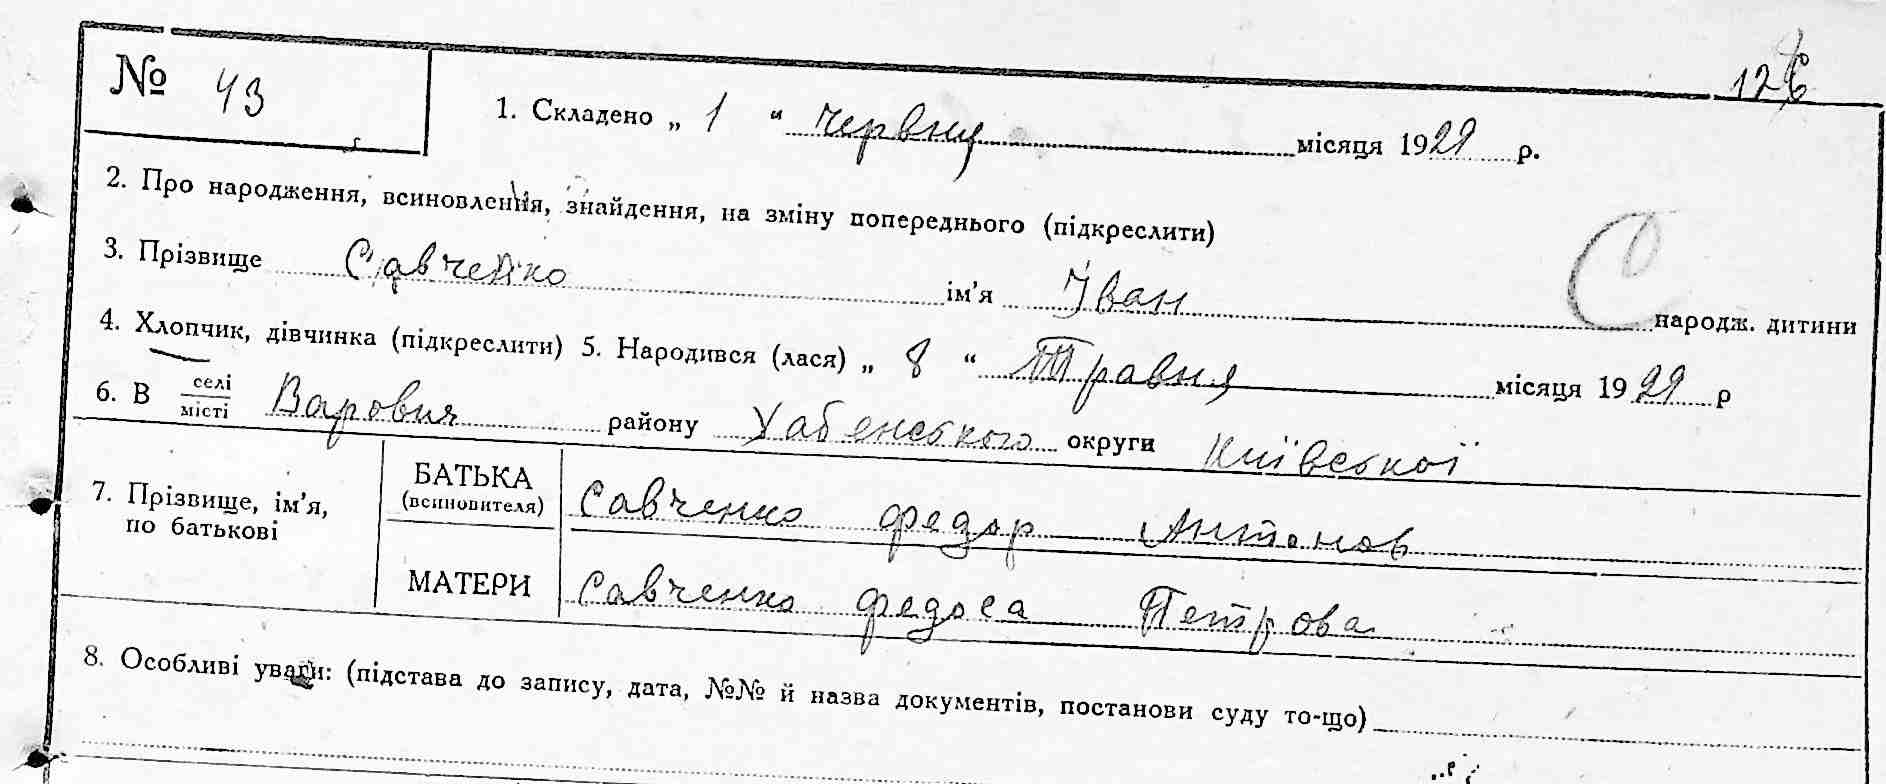 126
№ 43
1. Складено „ 1 “ червня місяця 1929 р.
2. Про народження, всиновлення, знайдення, на зміну попереднього (підкреслити)
С
3. Прізвище Савченко ім’я Іван народж. дитини
4. Хлопчик, дівчинка (підкреслити) 5. Народився (лася) „ 8 “ Травня місяця 1929 р
6. В селі місті Варовичі району Хабенського округи Київської
7. Прізвище, ім’я, по батькові
БАТЬКА (всиновителя) Савченко Федор Антонов
МАТЕРИ Савченко Федоса Петрова
8. Особливі уваги: (підстава до запису, дата, №№ й назва документів, постанови суду то-що)